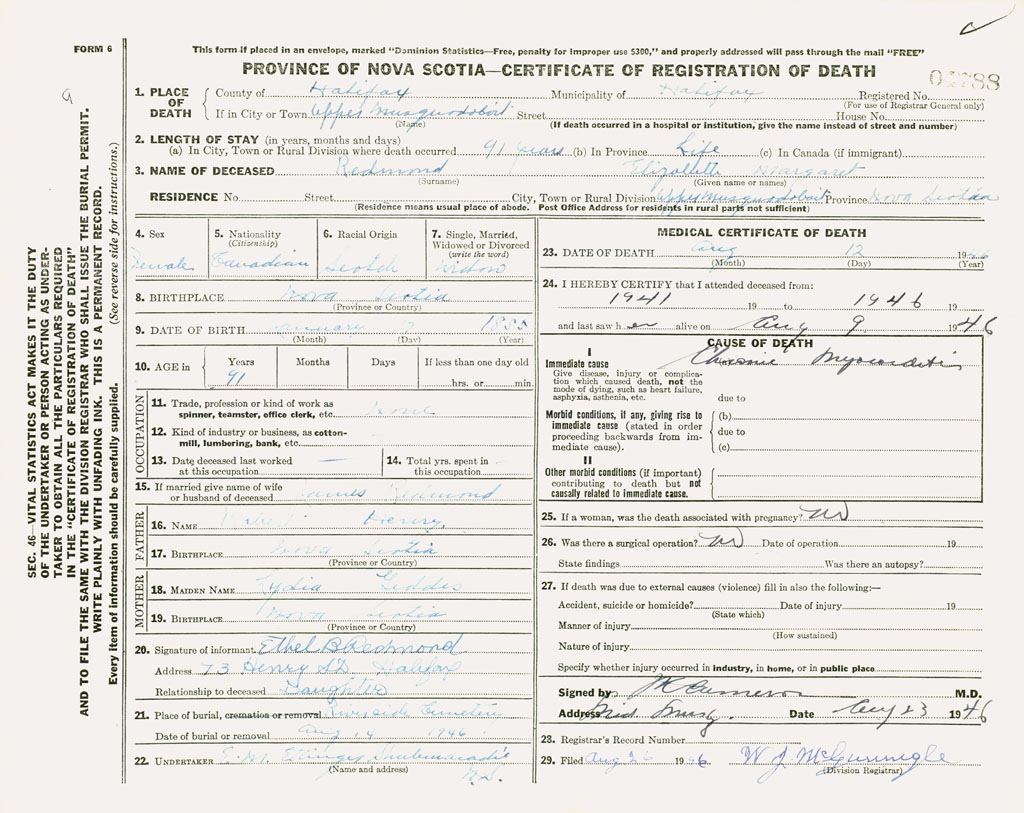 FORM 6
This form if placed in an envelope, marked "Dominion Statistics—Free, penalty for improper use $300," and properly addressed will pass through the mail "FREE"
PROVINCE OF NOVA SCOTIA—CERTIFICATE OF REGISTRATION OF DEATH
1. PLACE OF DEATH
County of Halifax Municipality of Halifax Registered No.
(For use of Registrar General only)
If in City or Town Upper Musquodoboit Street House No.
(Name) (If death occurred in a hospital or institution, give the name instead of street and number)
2. LENGTH OF STAY (in years, months and days)
(a) In City, Town or Rural Division where death occurred 91 years (b) In Province Life (c) In Canada (if immigrant)
3. NAME OF DECEASED Redmond Elizabeth Margaret
(Surname) (Given name or names)
RESIDENCE No. Street City, Town or Rural Division Upper Musquodoboit Province Nova Scotia
(Residence means usual place of abode. Post Office Address for residents in rural parts not sufficient)
4. Sex
Female
5. Nationality
(Citizenship)
Canadian
6. Racial Origin
Scotch
7. Single, Married, Widowed or Divorced
(write the word)
Widow
8. BIRTHPLACE Nova Scotia
(Province or Country)
9. DATE OF BIRTH January 7
(Month) (Day) (Year)
10. AGE in
Years
91
Months
Days
If less than one day old
hrs. or min.
OCCUPATION
11. Trade, profession or kind of work as spinner, teamster, office clerk, etc.
12. Kind of industry or business, as cotton-mill, lumbering, bank, etc.
13. Date deceased last worked at this occupation
14. Total yrs. spent in this occupation
15. If married give name of wife or husband of deceased James Redmond
FATHER
16. NAME Henry
17. BIRTHPLACE Nova Scotia
(Province or Country)
MOTHER
18. MAIDEN NAME Lydia Geddes
19. BIRTHPLACE Nova Scotia
(Province or Country)
20. Signature of informant Ethel B Redmond
Address 73 Henry St. Halifax
Relationship to deceased Daughter
21. Place of burial, cremation or removal Riverside Cemetery
Date of burial or removal Aug 14 1946
22. UNDERTAKER Shubenacadie
N.S.
(Name and address)
MEDICAL CERTIFICATE OF DEATH
23. DATE OF DEATH Aug 12 1946
(Month) (Day) (Year)
24. I HEREBY CERTIFY that I attended deceased from:
1941 19 to 1946 19
and last saw her alive on Aug 9 1946
CAUSE OF DEATH
I
Immediate cause (a) Chronic Myocarditis
Give disease, injury or complication which caused death, not the mode of dying, such as heart failure, asphyxia, asthenia, etc.
due to
Morbid conditions, if any, giving rise to immediate cause (stated in order proceeding backwards from immediate cause).
(b)
due to
(c)
II
Other morbid conditions (if important) contributing to death but not causally related to immediate cause.
25. If a woman, was the death associated with pregnancy? No
26. Was there a surgical operation? No Date of operation 19
State findings Was there an autopsy?
27. If death was due to external causes (violence) fill in also the following:—
Accident, suicide or homicide? Date of injury 19
(State which)
Manner of injury
(How sustained)
Nature of injury
Specify whether injury occurred in industry, in home, or in public place
Signed by Cameron M.D.
Address Mid Musq. Date Aug 23 1946
28. Registrar's Record Number
29. Filed Aug 26 1946
(Division Registrar)
SEC. 46—VITAL STATISTICS ACT MAKES IT THE DUTY
OF THE UNDERTAKER OR PERSON ACTING AS UNDER-
TAKER TO OBTAIN ALL THE PARTICULARS REQUIRED
IN THE "CERTIFICATE OF REGISTRATION OF DEATH"
AND TO FILE THE SAME WITH THE DIVISION REGISTRAR WHO SHALL ISSUE THE BURIAL PERMIT.
WRITE PLAINLY WITH UNFADING INK. THIS IS A PERMANENT RECORD.
Every item of information should be carefully supplied. (See reverse side for instructions.)